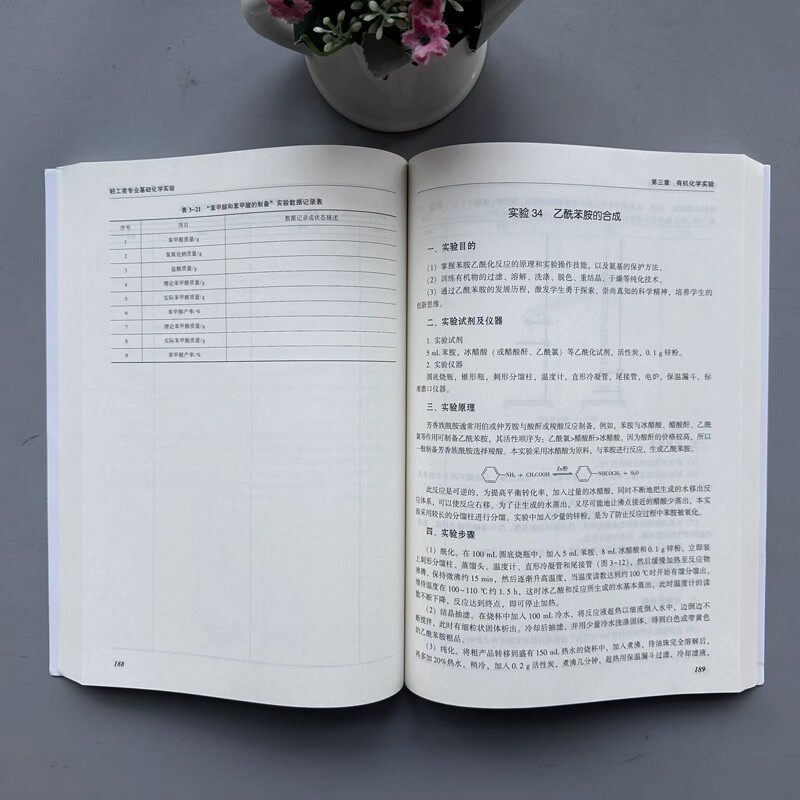 轻工类专业基础化学实验
表 3-21 “苯甲醇和苯甲酸的制备”实验数据记录表
序号 项目 数据记录或状态描述
1 苯甲醛质量/g
2 氢氧化钠质量/g
3 盐酸质量/g
4 理论苯甲醇质量/g
5 实际苯甲醇质量/g
6 苯甲醇产率/%
7 理论苯甲酸质量/g
8 实际苯甲酸质量/g
9 苯甲酸产率/%
188
第三章 有机化学实验
实验 34 乙酰苯胺的合成
一、实验目的
(1) 掌握苯胺乙酰化反应的原理和实验操作技能，以及氨基的保护方法。
(2) 训练有机物的过滤、溶解、洗涤、脱色、重结晶、干燥等纯化技术。
(3) 通过乙酰苯胺的发展历程，激发学生勇于探索、崇尚真知的科学精神，培养学生的
创新思维。
二、实验试剂及仪器
1. 实验试剂
5 mL 苯胺，冰醋酸（或醋酸酐、乙酰氯）等乙酰化试剂，活性炭，0.1 g 锌粉。
2. 实验仪器
圆底烧瓶，锥形瓶，刺形分馏柱，温度计，直形冷凝管，尾接管，电炉，保温漏斗，标
准磨口仪器。
三、实验原理
芳香族酰胺通常用伯或仲芳胺与酸酐或羧酸反应制备，例如，苯胺与冰醋酸、醋酸酐、乙酰
氯等作用可制备乙酰苯胺，其活性顺序为：乙酰氯>醋酸酐>冰醋酸。因为酸酐的价格较高，所以
一般制备芳香族酰胺选择羧酸。本实验采用冰醋酸为原料，与苯胺进行反应，生成乙酰苯胺。
NH₂ + CH₃COOH Zn粉 NHCOCH₃ + H₂O
此反应是可逆的，为提高平衡转化率，加入过量的冰醋酸，同时不断地把生成的水移出反
应体系，可以使反应右移。为了让生成的水蒸出，又尽可能地让沸点接近的醋酸少蒸出，本实
验采用较长的分馏柱进行分馏。实验中加入少量的锌粉，是为了防止反应过程中苯胺被氧化。
四、实验步骤
(1) 酰化。在 100 mL 圆底烧瓶中，加入 5 mL 苯胺、8 mL 冰醋酸和 0.1 g 锌粉。立即装
上刺形分馏柱、蒸馏头、温度计、直形冷凝管和尾接管（图 3-12），然后缓慢加热至反应物
沸腾，保持微沸约 15 min，然后逐渐升高温度，当温度读数达到约 100 ℃时开始有馏分馏出。
维持温度在 100~110 ℃约 1.5 h，这时冰乙酸和反应所生成的水基本蒸出。此时温度计的读
数不断下降，反应达到终点，即可停止加热。
(2) 结晶抽滤。在烧杯中加入 100 mL 冷水，将反应液趁热以细流倒入水中，边倒边不
断搅拌，此时有细粒状固体析出。冷却后抽滤，并用少量冷水洗涤固体，得到白色或带黄色
的乙酰苯胺粗品。
(3) 纯化。将粗产品转移到盛有 150 mL 热水的烧杯中，加入煮沸，待油珠完全溶解后，
再多加 20%热水。稍冷，加入 0.2 g 活性炭，煮沸几分钟，趁热用保温漏斗过滤，冷却滤液，
189